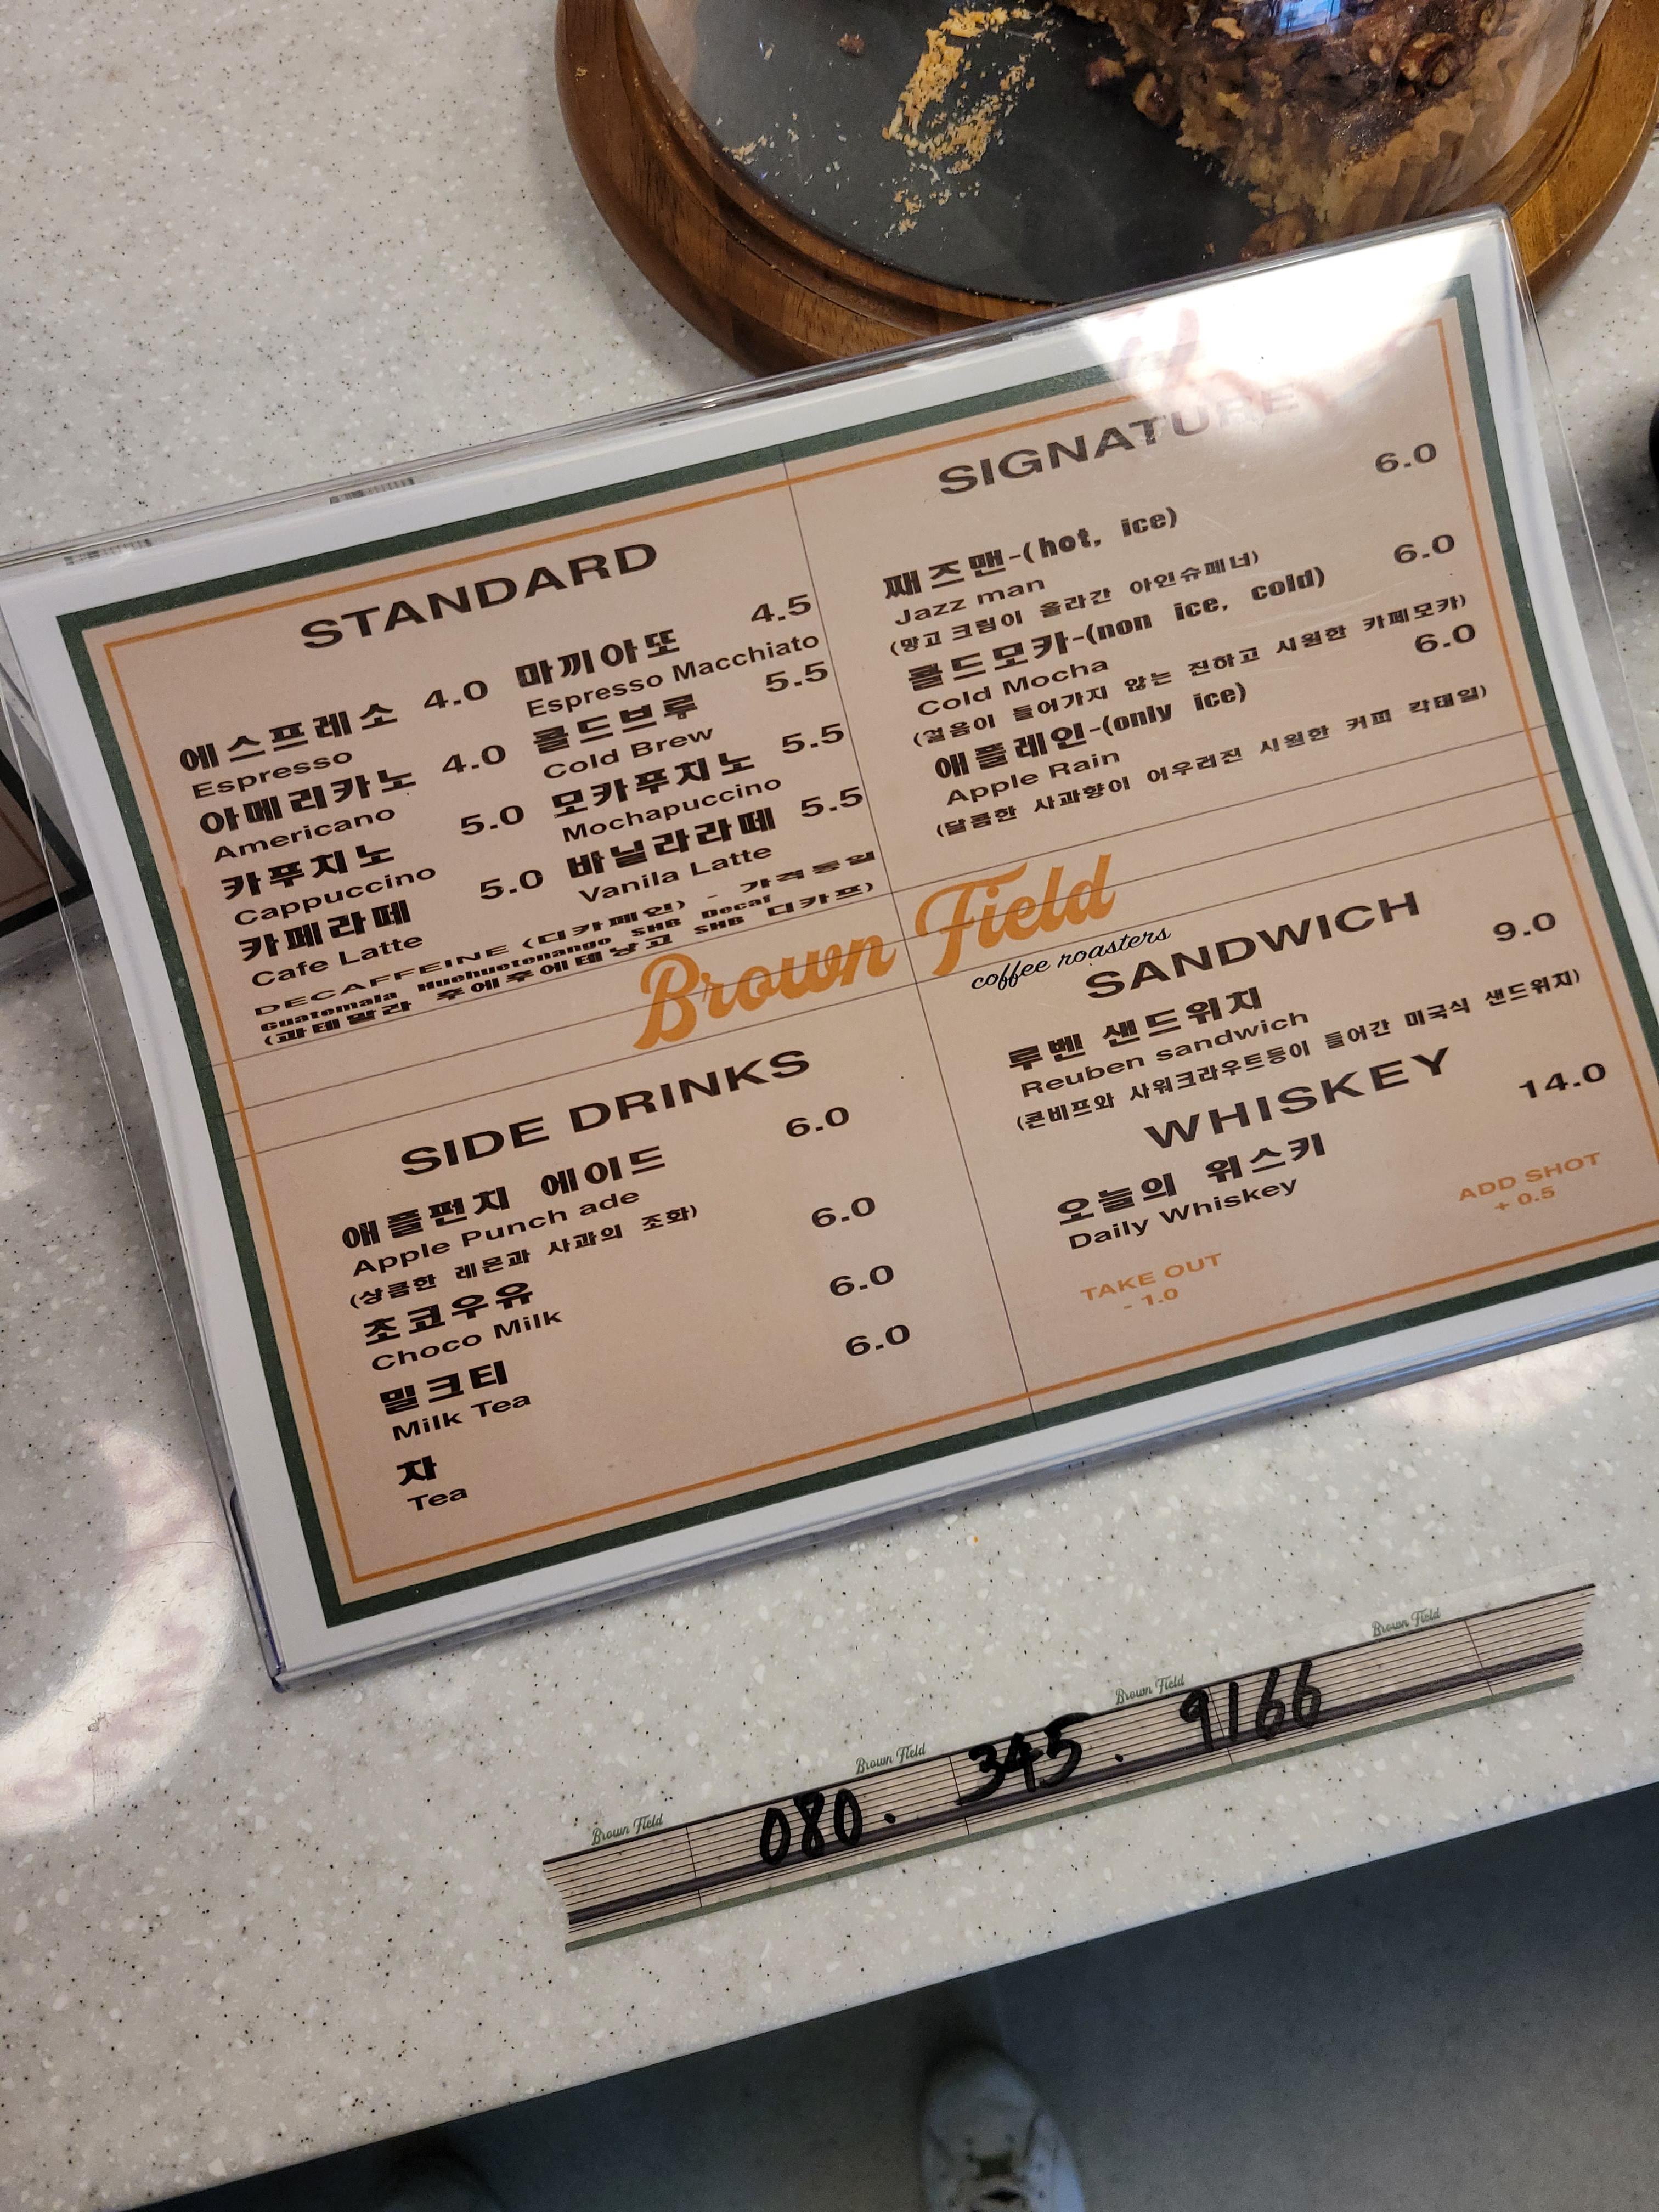 STANDARD
에스프레소 4.0
Espresso
아메리카노 4.0
Americano
카푸치노 5.0
Cappuccino
카페라떼 5.0
Cafe Latte
마끼아또 4.5
Espresso Macchiato
콜드브루 5.5
Cold Brew
모카푸치노 5.5
Mochapuccino
바닐라라떼 5.5
Vanila Latte
DECAFFEINE (디카페인) - 가격동일
Guatemala Huehuetenango SHB Decaf
(과테말라 후에후에테낭고 SHB 디카프)
SIGNATURE
째즈맨-(hot, ice) 6.0
Jazz man
(망고 크림이 올라간 아인슈페너)
콜드모카-(non ice, cold) 6.0
Cold Mocha
(얼음이 들어가지 않는 진하고 시원한 카페모카)
애플레인-(only ice) 6.0
Apple Rain
(달콤한 사과향이 어우러진 시원한 커피 칵테일)
Brown Field
coffee roasters
SIDE DRINKS
애플펀치 에이드 6.0
Apple Punch ade
(상큼한 레몬과 사과의 조화)
초코우유 6.0
Choco Milk
밀크티 6.0
Milk Tea
차 6.0
Tea
SANDWICH
루벤 샌드위치 9.0
Reuben sandwich
(콘비프와 사워크라우트등이 들어간 미국식 샌드위치)
WHISKEY
오늘의 위스키 14.0
Daily Whiskey
TAKE OUT
- 1.0
ADD SHOT
+ 0.5
Brown Field
Brown Field
Brown Field
Brown Field
080. 345. 9166